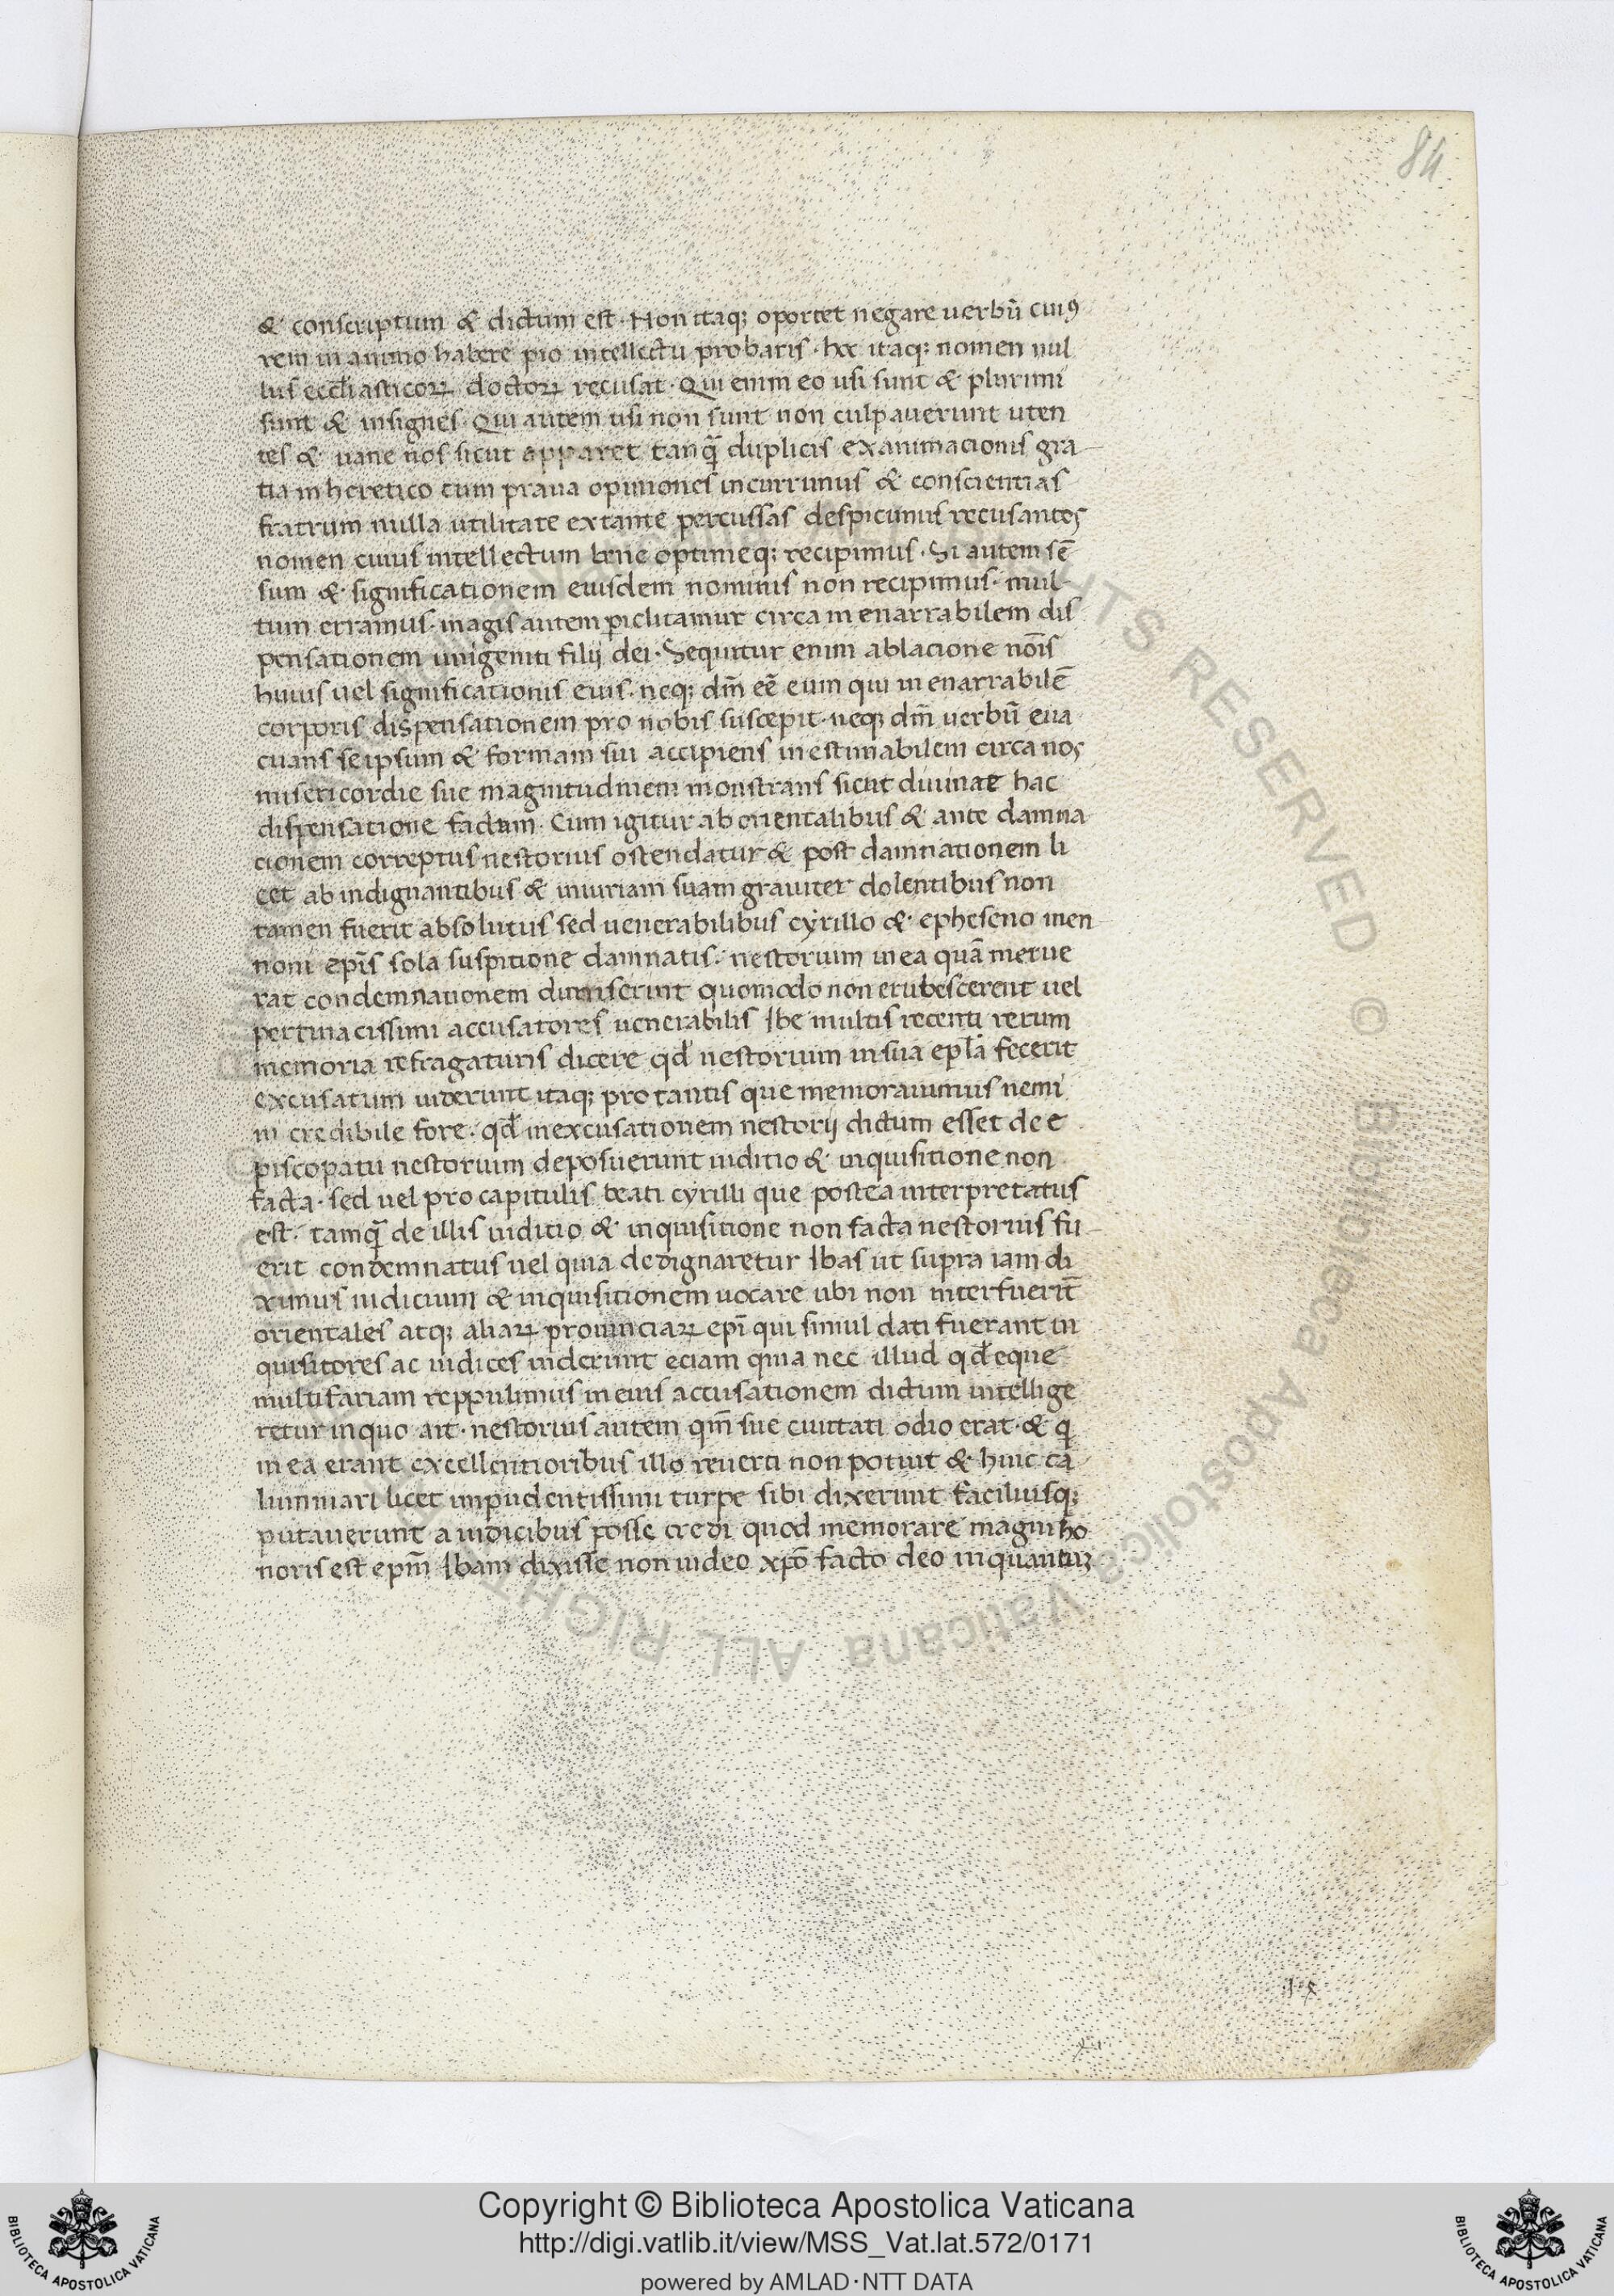 84
& conscriptum & dictum est · Non itaq; oportet negare uerbū cuiꝰ
rem in animo habere pio intellectu probaris · hoc itaq; nomen nul
lus eccl̄iasticoꝝ doctoꝝ recusat · Qui enim eo usi sunt & plurimi
sunt & insignes · Qui autem usi non sunt non culpauerunt uten
tes & uane nos sicut apparet tanq̄ duplicis examinacionis gra-
tia in heretico cum praua opiniones incurrimus & conscientias
fratrum nulla utilitate extante percussas despicimus recusantes
nomen cuius intellectum bene optimeq; recipimus · Si autem sē
sum & significationem eiusdem nominis non recipimus · mul
tum erramus · magis autem periclitamur circa inenarrabilem dis
pensationem unigeniti filij dei · Sequitur enim ablacione nōis
huius uel significationis eius · neq; dm̄ eē eum qui inenarrabilē
corporis dispensationem pro nobis suscepit · neq; dm̄ uerbū eua
cuans seipsum & formam sui accipiens inestimabilem circa nos
misericordie sue magnitudinem monstrans sicut diuinae hac
dispensatione factam · Cum igitur ab orientalibus & ante damna
cionem correptus nestorius ostendatur & post damnationem li
cet ab indignantibus & iniuriam suam grauiter dolentibus non
tamen fuerit absolutus sed uenerabilibus cyrillo & epheseno men-
noni ep̄is sola suspitione damnatis · nestorium in ea quā metue
rat condemnationem dimiserint quomodo non erubescerent uel
pertinacissimi accusatores uenerabilis Ibe multis recenti rerum
memoria refragaturis dicere qđ nestorium in sua epl̄a fecerit
excusatum uiderunt itaq; pro tantis que memorauimus nemi
ni credibile fore · qđ in excusationem nestorij dictum esset de e
piscopatu nestorium deposuerunt iuditio & inquisitione non
facta · sed uel pro capitulis beati cyrilli que postea interpretatus
est · tamq̄ de illis iuditio & inquisitione non facta nestorius fu-
erit condemnatus uel quia dedignaretur Ibas ut supra iam di
ximus iudicium & inquisitionem uocare ubi non interfuerīt
orientales atq; aliaꝝ prouinciaꝝ ep̄i qui simul dati fuerant in
quisitores ac iudices uiderunt eciam quia nec illud qđ eque
multifariam reppulimus in eius accusationem dictum intellige
retur in quo ait · nestorius autem qm̄ sue ciuitati odio erat · & qi
in ea erant excellentioribus illo reuerti non potuit & hinc ca
lumniari licet impudentissimi turpe sibi dixerunt faciliusq;
putauerunt a iudicibus posse credi quod memorare magni ho
noris est ep̄m Ibam dixisse non uideo xp̄o facto deo inquantuꝫ
Copyright © Biblioteca Apostolica Vaticana
http://digi.vatlib.it/view/MSS_Vat.lat.572/0171
powered by AMLAD·NTT DATA